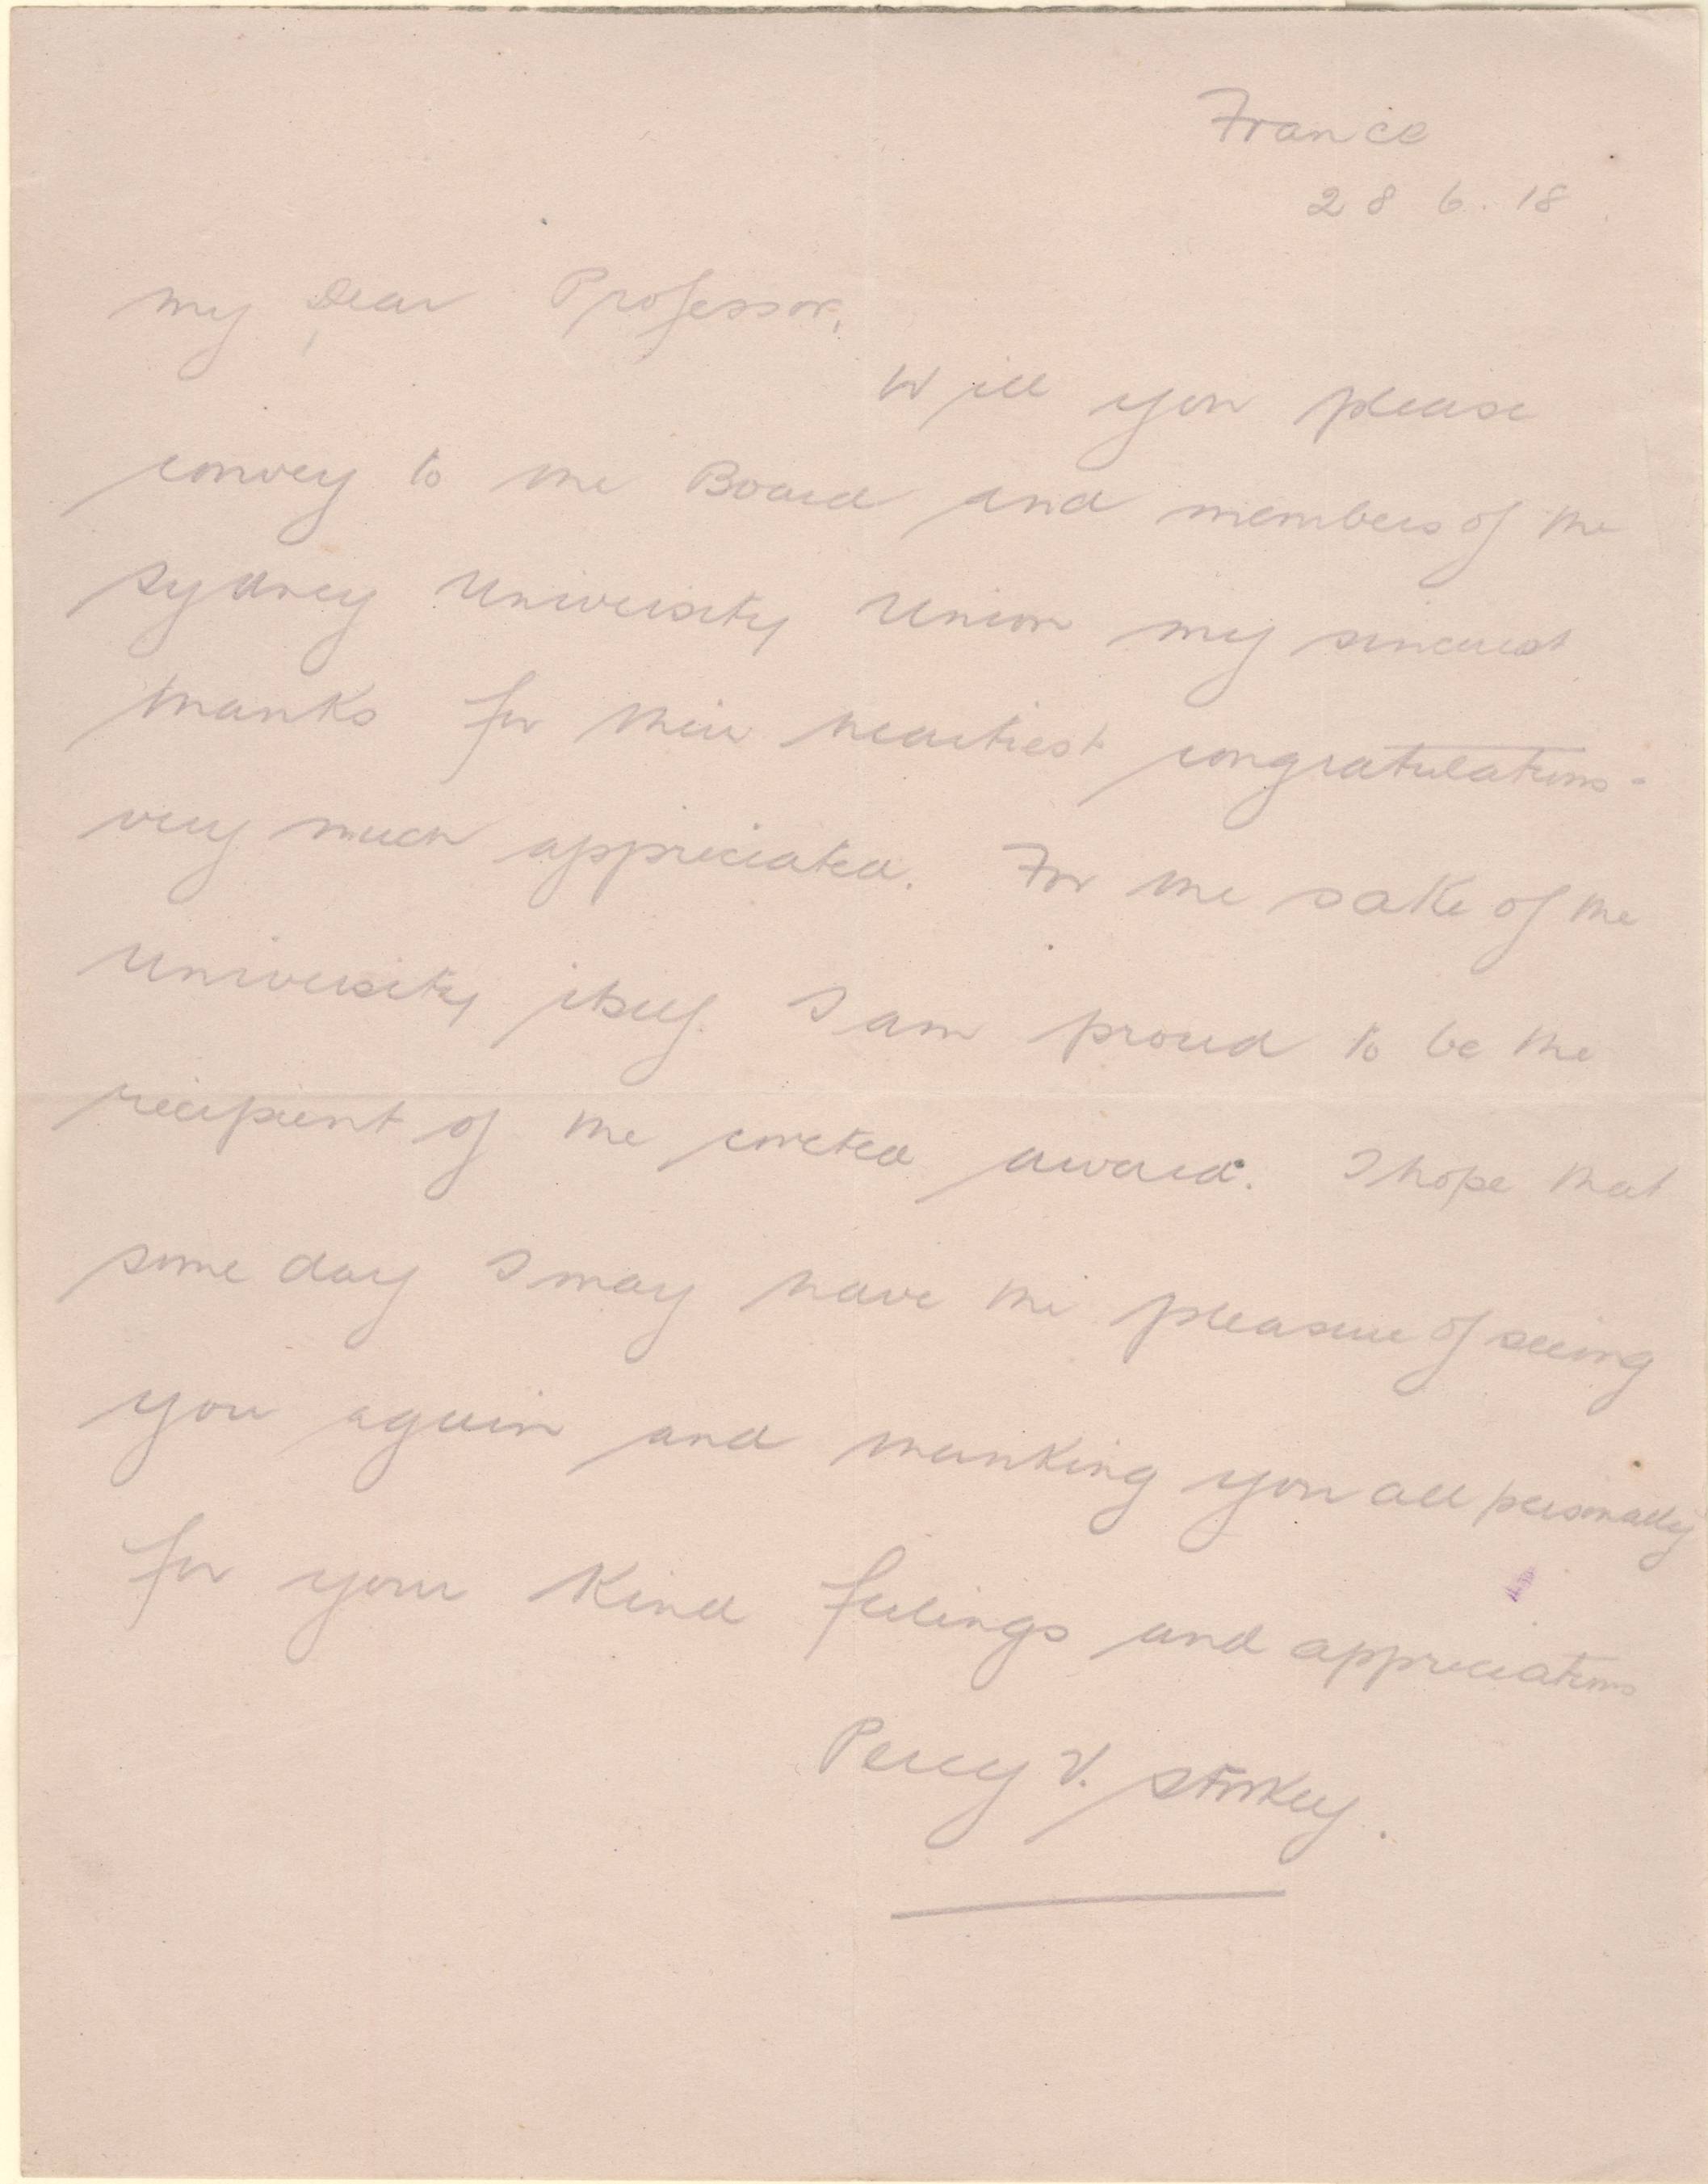 France
28 6. 18
My Dear Professor,
Will you please
convey to the Board and members of the
Sydney University Union my sincerest
thanks for their heartiest congratulations -
very much appreciated. For the sake of the
University itself I am proud to be the
recipient of the coveted award. I hope that
some day I may have the pleasure of seeing
you again and thanking you all personally
for your kind feelings and appreciations
Percy V. Storkey.